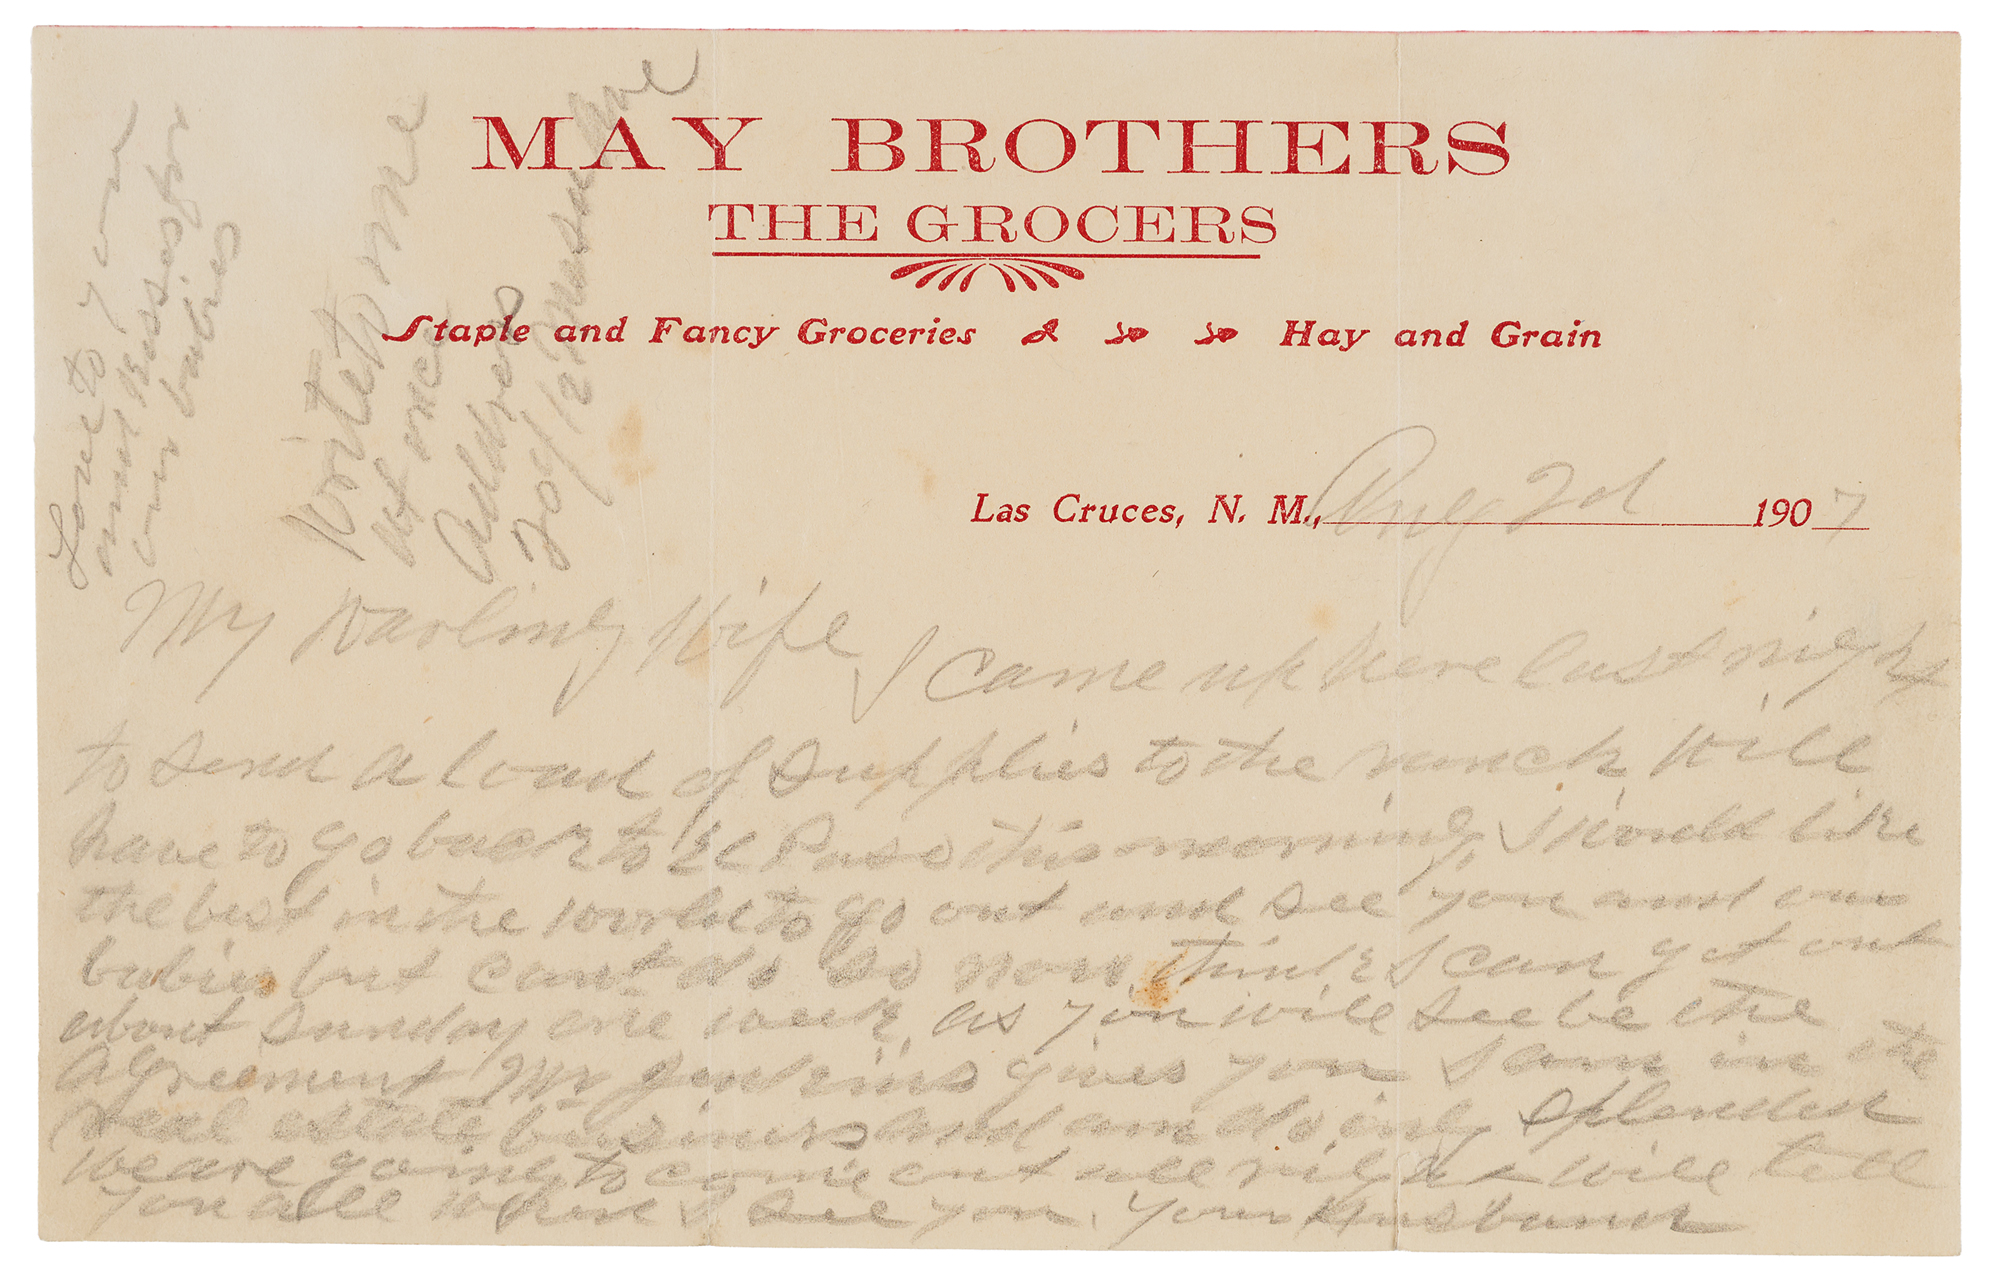 MAY BROTHERS
THE GROCERS
Staple and Fancy Groceries Hay and Grain
Las Cruces, N. M., Aug 2d 1907
My Darling Wife I came up here last night
to send a load of supplies to the ranch, will
have to go back to El Paso this morning, I would like
the best in the world to go out and see you and our
babies but can't do so now, think I can get out
about Sunday one week, as you will see be the
Agreement Mr Jenkins gives you I am in the
real estate business and am doing splended
we are going to come out all right will tell
you all when I see you, your Husband
Love to you
and kisses for
our babies
Write to me
at once
Address
Mesa Ave